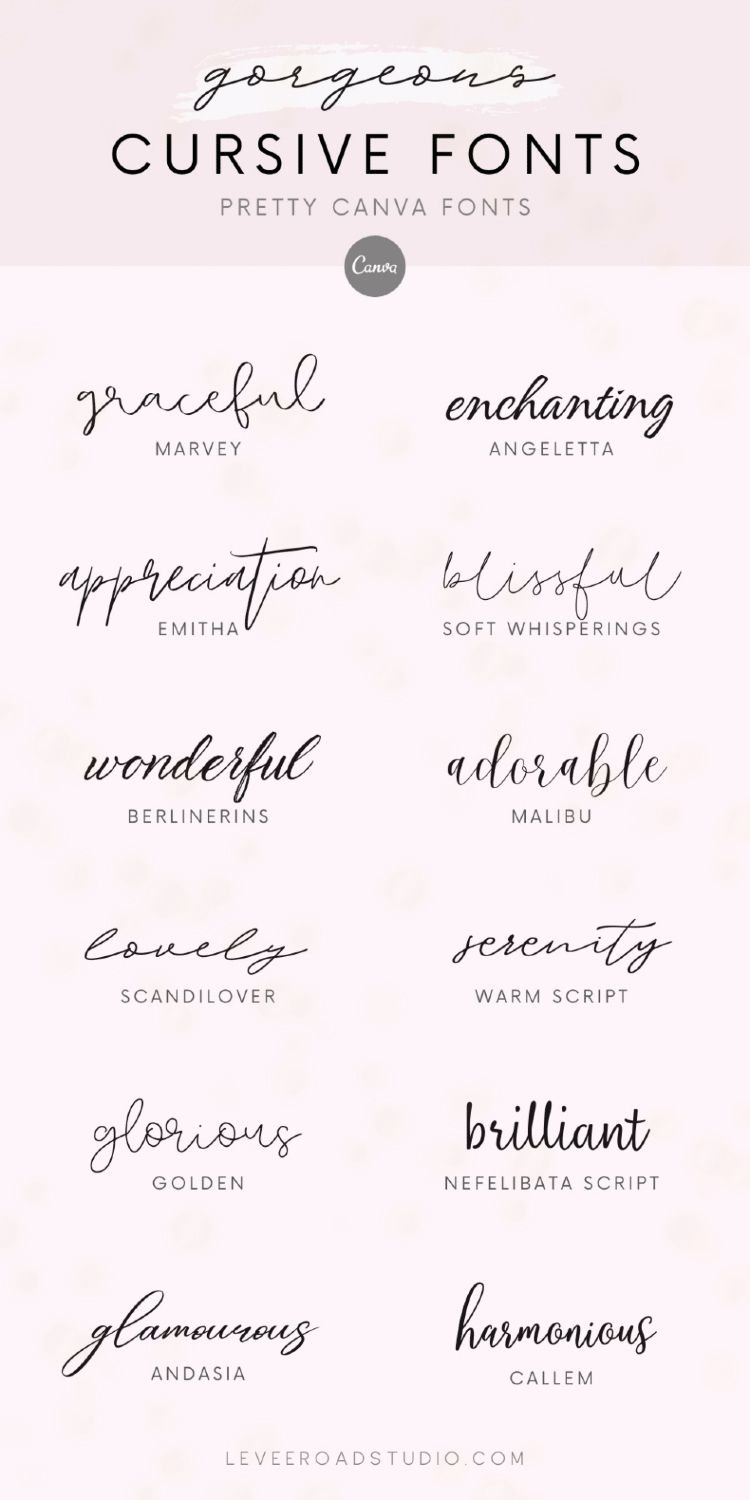 gorgeous
CURSIVE FONTS
PRETTY CANVA FONTS
Canva
graceful
MARVEY
enchanting
ANGELETTA
appreciation
EMITHA
blissful
SOFT WHISPERINGS
wonderful
BERLINERINS
adorable
MALIBU
lovely
SCANDILOVER
serenity
WARM SCRIPT
glorious
GOLDEN
brilliant
NEFELIBATA SCRIPT
glamourous
ANDASIA
harmonious
CALLEM
LEVEEROADSTUDIO.COM